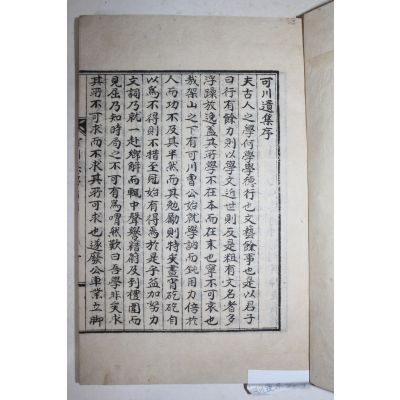 可川遺集序
夫古人之學何學學德行也文藝餘事也是以君子
曰行有餘力則以學文近世則反是粗有文名者多
浮躁放逸盖其所學不在本而在末也寧不可哀也
我架山之下有可川曺公始就學訥而鈍用力倍於
人而功不及其半然而其勉勵則特矣晝宵矻矻自
以爲不得則不措至冠始有得焉於是乎益加努力
文詞乃就一赴鄕解而輒中聲譽藉蔚及到禮圍而
見屈乃知時局之不可有爲喟然歎曰吾學非矣求
其所不可求而不求其所可求也遂廢公車業立脚